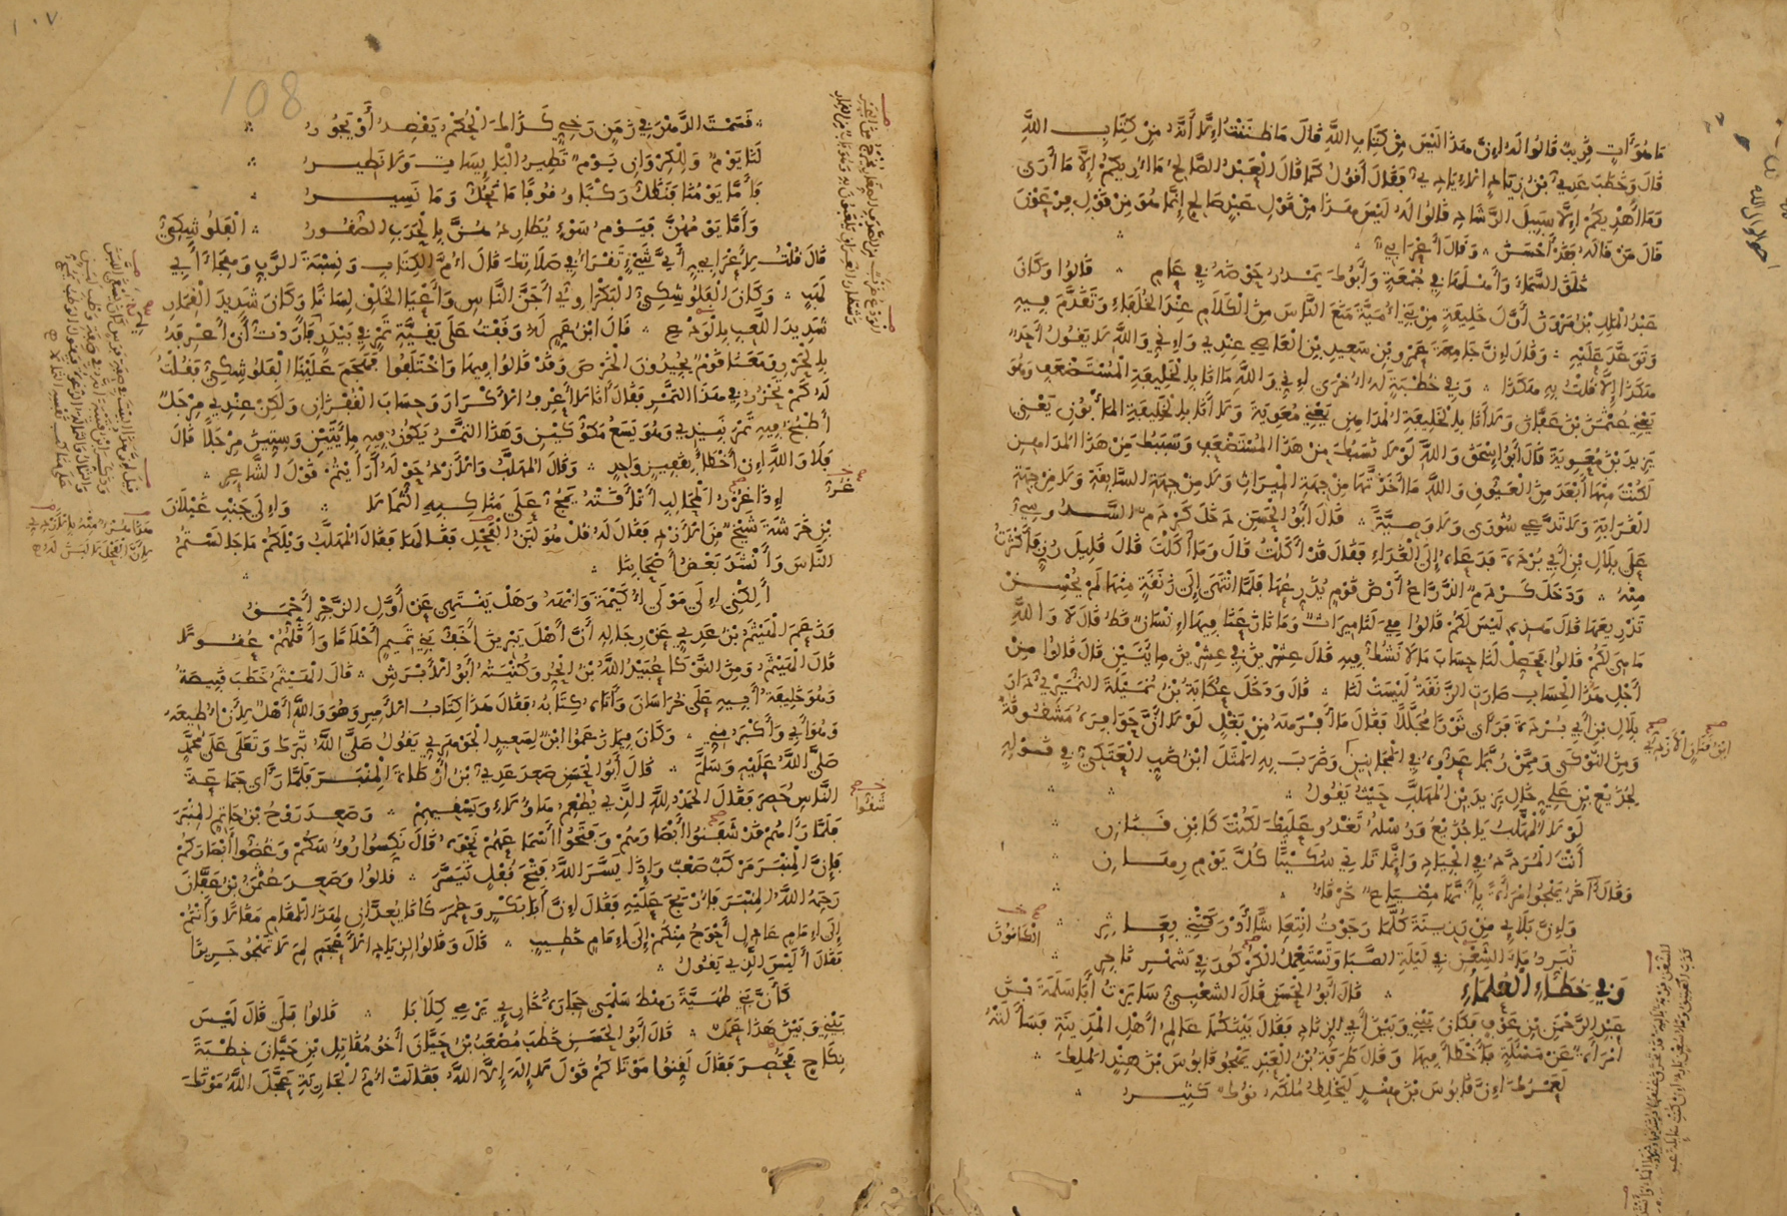 ما هو آت قريب قالوا له إن هذا ليس من كتاب الله قال ما ظننت إلا أنه من كتاب الله
قال وخطب عدي بن زياد الإيادي فقال أقول كما قال العبد الصالح ما أريكم إلا ما أرى
وما أهديكم إلا سبيل الرشاد قالوا له ليس هذا من قول عبد صالح إنما هو من قول فرعون
قال من قاله فقد أحسن وقال أعرابي
خلق السماء وأهلها في جمعة وأبوك يمدر حوضه في عام قالوا وكان
عبد الملك بن مروان أول خليفة من بني أمية منع الناس من الكلام عند الخلفاء وتقدم فيه
وتوعد عليه وقال إن جامعة عمرو بن سعيد بن العاصي عندي وإني والله لا يقول أحد
هكذا إلا قلت به هكذا وفي خطبة له أخرى إني والله ما أنا بالخليفة المستضعف وهو
يعني عثمن بن عفان ولا أنا بالخليفة المداهن يعني معوية ولا أنا بالخليفة المأبون يعني
يزيد بن معوية قال أبو إسحق والله لولا نسبك من هذا المستضعف وسببك من هذا المداهن
لكنت منها أبعد من العيوق والله ما أخذتها من جهة الميراث ولا من جهة السابقة ولا من جهة
القرابة ولا تدعي شورى ولا وصية قال أبو الحسن دخل كردم السدوسي
على بلال بن أبي بردة فدعاه إلى الغداء فقال قد أكلت قال وما أكلت قال قليل رز فأكثرت
منه ودخل كردم الذراع أرض قوم يذرعها فلما انتهى إلى زنقة منها لم يحسن
تذريعها قال هذه ليس لكم قالوا هي لنا ميراث وما نازعنا فيها إنسان قط قال لا والله
ما هي لكم قالوا فحصل لنا حساب ما لا نشك فيه قال عشرين في عشرين مايتين قال قالوا من
أجل هذا الحساب صارت الزنقة ليست لنا قال ودخل عكابة بن نميلة النميري دار
بلال بن أبي بردة فرأى ثورا مجللا فقال ما أفرهه من بغل لولا أن حوافره مشقوقة
ومن النوكى وممن ربما عدوه في المجانين وضرب به المثل ابن ضب العتكي في قوله
لجديع بن علي خال يزيد بن المهلب حيث يقول
لولا المهلب يا جديع ورسله تغدو عليك لكنت كابن قنان
أنت المردد في الجياد وإنما تاتي سكيتا كل يوم رهان
وقال آخر يهجو امرأة بأنها مضياع خرقاء
وإن بلائي من رزينة كلما رجوت انتعاشا أدركتني بعاثر
تبرد ماء الشعن في ليلة الصبا وتستعمل الكركور في شهر ناجر
وفي خطاء العلماء قال أبو الحسن قال الشعبي سايرت أبا سلمة بن
عبد الرحمن بن عوف فكان بيني وبين أبي الزناد فقال بينكما عالم أهل المدينة فسألته
امرأة عن مسئلة فأخطأ فيها وقال طرفة بن العبد يهجو قابوس بن هند الملك
لعمرك إن قابوس بن هند ليخلط ملكه نوك كثير
108
قسمت الدهر في زمن رخي كذاك الحكم يقصد أو يجور
لنا يوم وللكروان يوم تطير البايسات ولا نطير
فأما يومنا فنظل ركبا وقوفا ما نحل وما نسير
وأما يومهن فيوم سوء يطاردهن بالحدب الصقور العلوشكي
قال قلت لأعرابي أي شيء تقرأ في صلاتك قال أم الكتاب ونسبة الرب وهجاء أبي
لهب وكان العلوشكي البكراوي أجن الناس وأعيا الخلق لسانا وكان شديد القمار
شديد اللعب بالودع قال ابن عم له وقفت على بقية تمر في بيدر فأردت أن أعرفه
بالحزر ومعنا قوم يجيدون الخرص وقد قالوا فيها واختلفوا فهجم علينا العلوشكي فقلت
له كم تحزر في هذا التمر فقال أنا لا أعرف الأكرار وحساب القفزان ولكن عندي مرجل
أطبخ فيه تمر نبيذي وهو يسع مكوكين وهذا التمر يكون فيه مايتين وستين مرجلا قال
فلا والله إن أخطأ بقفيز واحد وقال المهلب والأزد حوله أرأيتم قول الشاعر
إذا غرز المحالب أتأقته يمج على مناكبه الثمالا وإلى جنب غيلان
بن خرشة شيخ من الأزد فقال له قل هو لبن الفحل فقالها فقال المهلب ويلكم ما جالستم
الناس وأنشد بعض أصحابنا
ألكني إلى مولى أكيمة وانهه وهل ينتهي عن أول الزجر أحمق
وزعم الهيثم بن عدي عن رجاله أن أهل يبرين أخف بني تميم أحلاما وأقلهم عقولا
قال الهيثم ومن النوكى عبيد الله بن الحر وكنيته أبو الأبرش قال الهيثم خطب قبيصة
وهو خليفة أبيه على خراسان وأتاه كتابه فقال هذا كتاب الأمير وهو والله أهل لأن أطيعه
وهو أبي وأكبر مني وكان فيما زعموا ابن لسعيد الجوهري يقول صلى الله تبرك وتعلى على محمد
صلى الله عليه وسلم قال أبو الحسن صعد عدي بن أرطاة المنبر فلما رأى جماعة
الناس حصر فقال الحمد لله الذي يطعم هاؤلاء ويسقيهم وصعد روح بن حاتم المنبر
فلما رآهم قد شفنوا أبصارهم وفتحوا أسماعهم نحوه قال نكسوا رؤوسكم وغضوا أبصاركم
فإن المنبر مركب صعب وإذا يسر الله فتح قفل تيسر قالوا وصعد عثمن بن عفان
رحمه الله المنبر فأرتج عليه فقال إن أبا بكر وعمر كانا يعدان لهذا المقام مقالا وأنتم
إلى إمام عادل أحوج منكم إلى إمام خطيب قال وقالوا لزياد الأعجم لم لا تهجو جريرا
فقال أليس الذي يقول
كأن بني طهية رهط سلمى حجارة خارئ يرمي كلابا قالوا بلى قال ليس
بيني وبين هذا عمل قال أبو الحسن خطب مصعب بن حيان أخو مقاتل بن حيان خطبة
نكاح فحصر فقال لقنوا موتاكم قول لا إله إلا الله فقالت أم الجارية عجل الله موتك